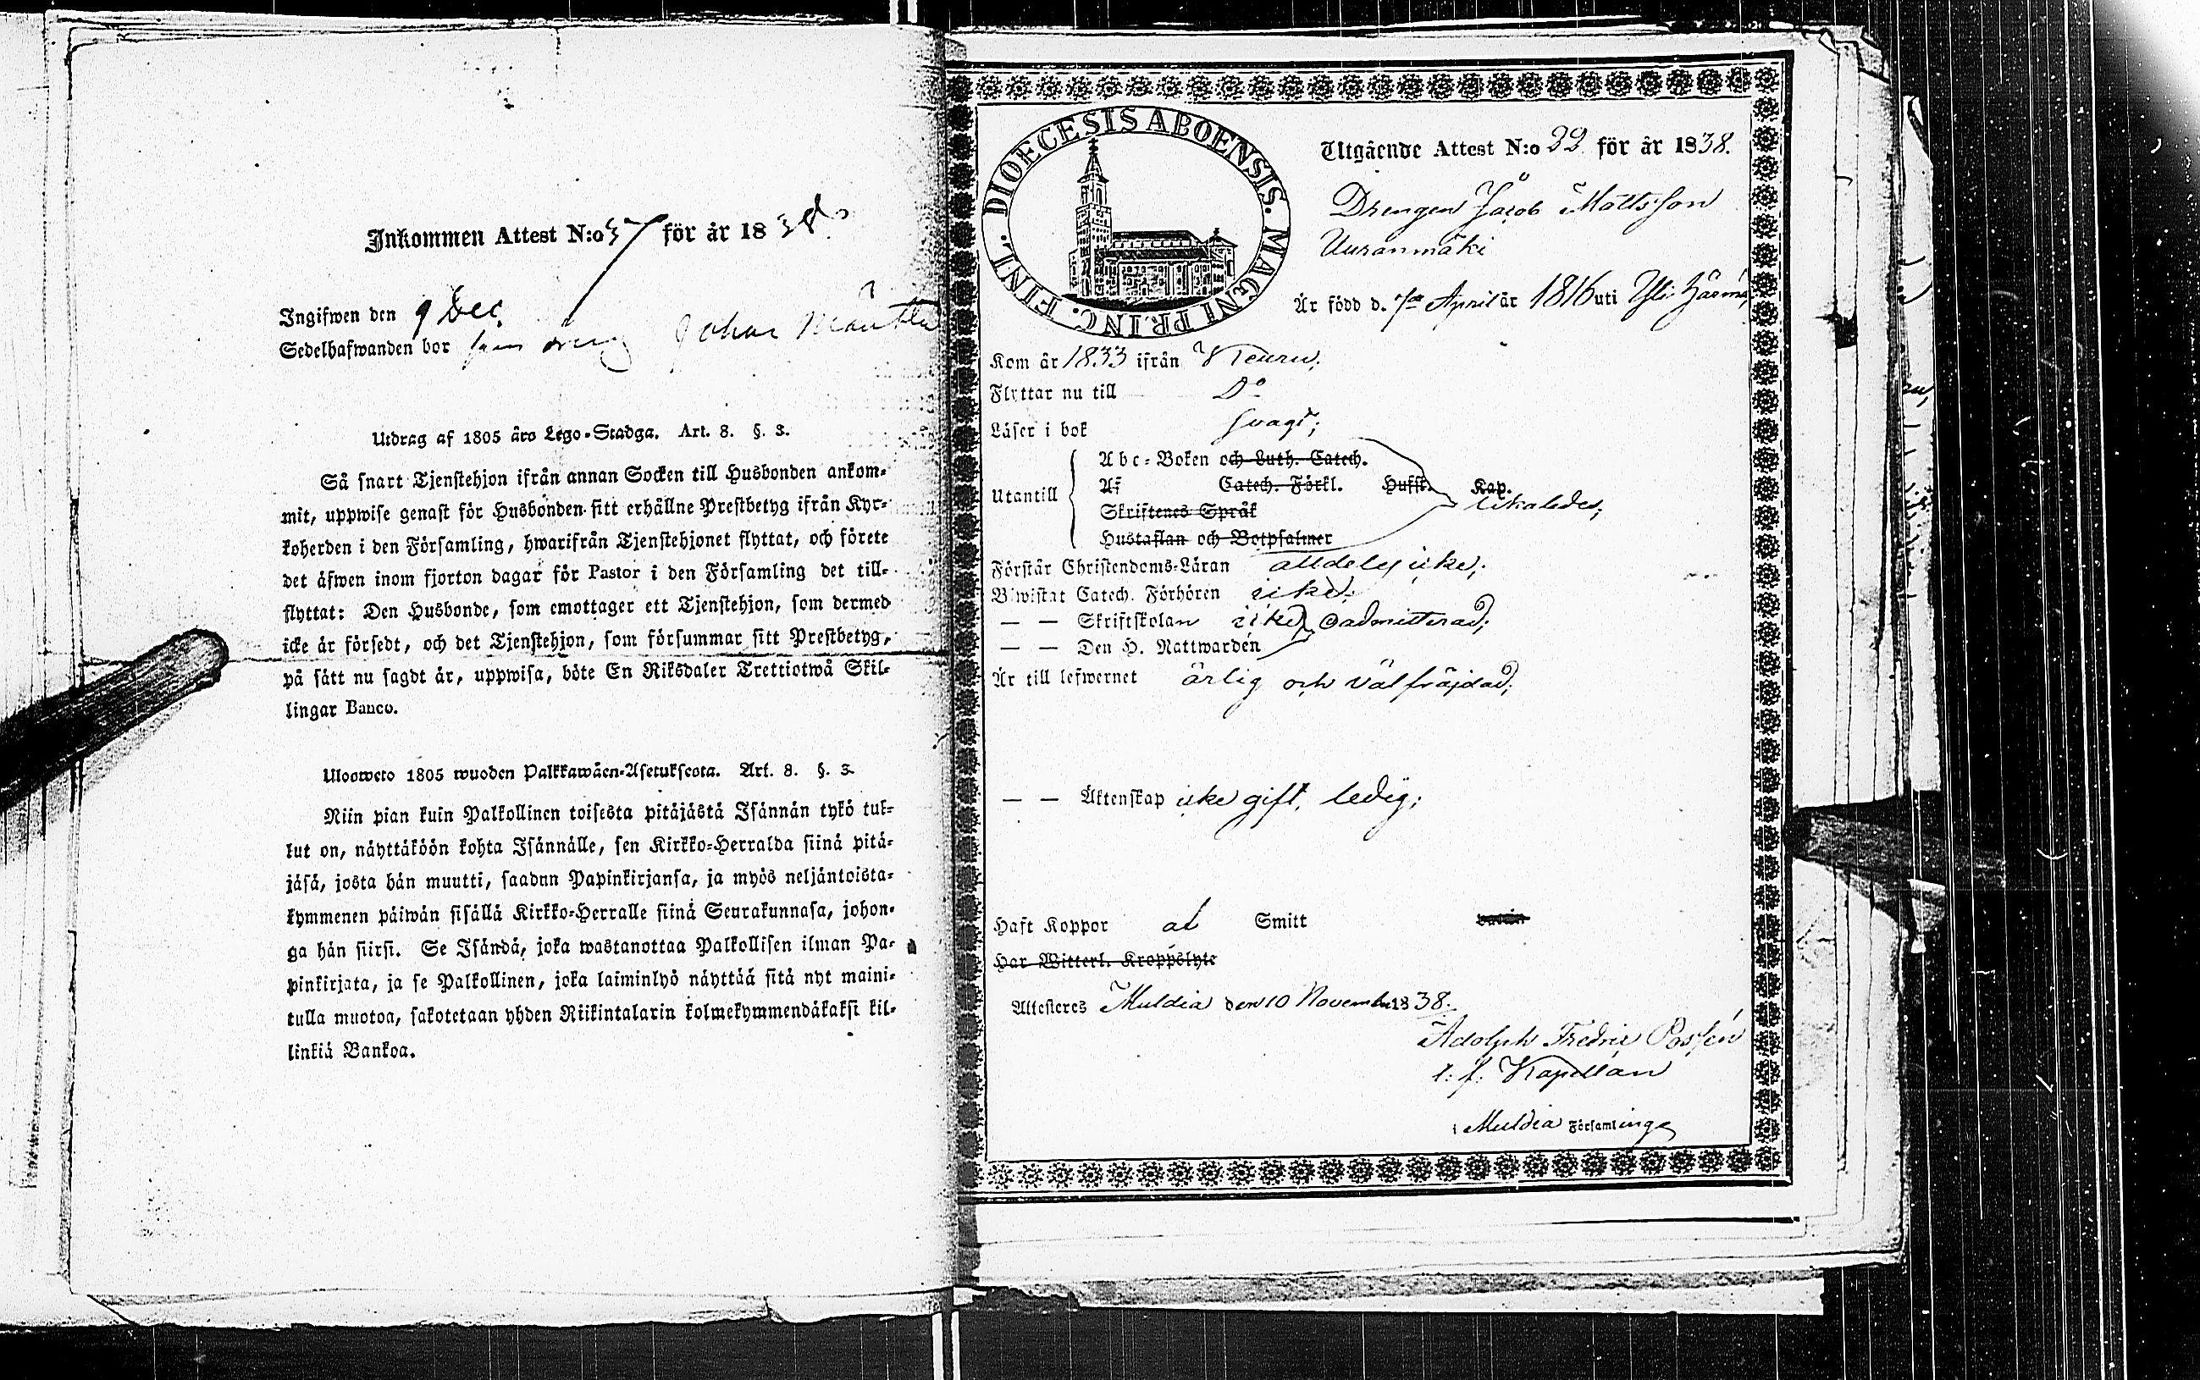 Inkommen Attest N:o 57 för år 1838.
Ingifwen den 9 Dec.
Sedelhafwanden bor som dreng Johan
Utdrag af 1805 års Lego-Stadga. Art. 8. §. 3.
Så snart Tjenstehjon ifrån annan Socken till Husbonden ankom-
mit, uppwise genast för Husbonden sitt erhållne Prestbetyg ifrån Kyr-
koherden i den Församling, hwarifrån Tjenstehjonet flyttat, och förete
det äfwen inom fjorton dagar för Pastor i den Församling det till-
flyttat: Den Husbonde, som emottager ett Tjenstehjon, som dermed
icke är försedt, och det Tjenstehjon, som försummar sitt Prestbetyg,
på sätt nu sagdt är, uppwisa, böte En Riksdaler Trettiotwå Skil-
lingar Banco.
Ulosweto 1805 wuoden Palkkawäen-Asetuksesta. Art. 8. §. 3.
Niin pian kuin Palkollinen toisesta pitäjästä Isännän tykö tul-
lut on, näyttäköön kohta Isännälle, sen Kirkko-Herralda siinä pitä-
jäsä, josta hän muutti, saadun Papinkirjansa, ja myös neljäntoista-
kymmenen päiwän sisällä Kirkko-Herralle siinä Seurakunnasa, johon-
ga hän siirsi. Se Isändä, joka wastanottaa Palkollisen ilman Pa-
pinkirjata, ja se Palkollinen, joka laiminlyö näyttää sitä nyt maini-
tulla muotoa, sakotetaan yhden Riikintalarin kolmekymmendäkaksi kil-
linkiä Bankoa.
DIOECESIS ABOENSIS. MAGNI PRINC. FINL.
Utgående Attest N:o 22 för år 1838.
Drengen Jacob Mattsson
Uuranmäki
Är född d. 7de April år 1816 uti Yli Härmä,
Kom år 1833 ifrån Keuru;
Flyttar nu till Do
Läser i bok svagt;
Utantill
Abc-Boken och Luth. Catech.
Af Catech. Förkl. Hufst. Kap.
Skriftenes Språk likaledes;
Hustaflan och Botpsalmer
Förstår Christendoms-Läran alldeles icke;
Biwistat Catech. Förhören icke;
— — Skriftskolan icke, oadmitterad;
— — Den H. Nattwarden
Är till lefwernet ärlig och välfräjdad;
— — Äktenskap icke gift, ledig;
Haft Koppor af Smitt
Har Witterl. Kroppslyte
Attesteres Muldia den 10 November 1838.
Adolph Fredric Possén
t. f. Kapellan
i Muldia Församlinge